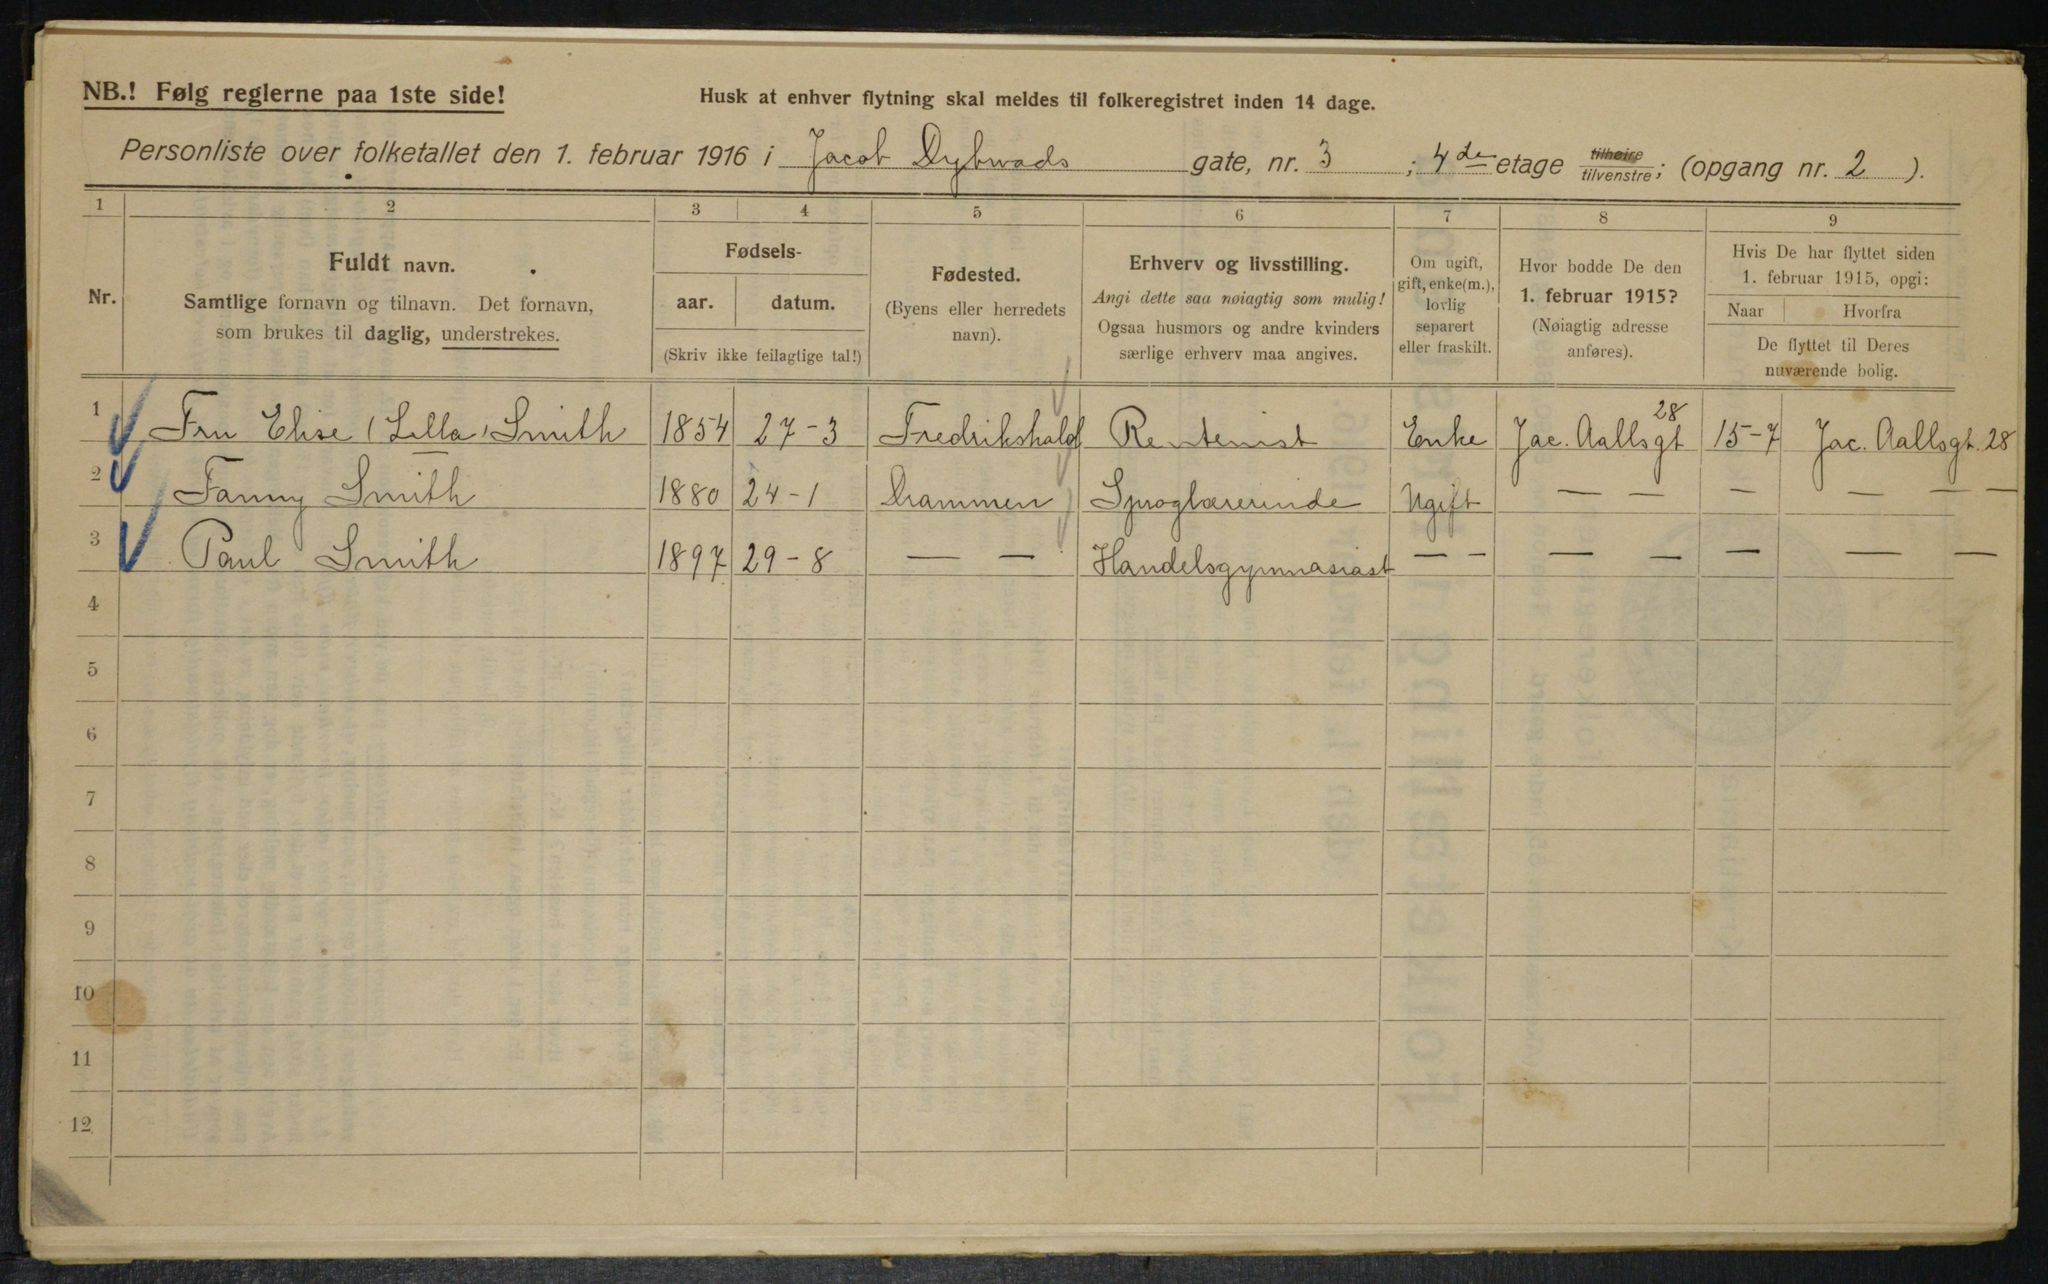 NB.! Følg reglerne paa 1ste side!
Husk at enhver flytning skal meldes til folkeregistret inden 14 dage.
Personliste over folketallet den 1. februar 1916 i Jacob Dybwads gate, nr. 3 ; 4de etage tilhøire tilvenstre; (opgang nr. 2 ).
1 2 3 4 5 6 7 8 9
Nr.
Fuldt navn.
Samtlige fornavn og tilnavn. Det fornavn,
som brukes til daglig, understrekes.
Fødsels-
aar. datum.
(Skriv ikke feilagtige tal!)
Fødested.
(Byens eller herredets
navn).
Erhverv og livsstilling.
Angi dette saa nøiagtig som mulig!
Ogsaa husmors og andre kvinders
særlige erhverv maa angives.
Om ugift,
gift, enke(m.),
lovlig
separert
eller fraskilt.
Hvor bodde De den
1. februar 1915?
(Nøiagtig adresse
anføres).
Hvis De har flyttet siden
1. februar 1915, opgi:
Naar Hvorfra
De flyttet til Deres
nuværende bolig.
1 Fru Elise (Lilla) Smith 1854 27-3 Fredrikshald Rentenist Enke Jac. Aallsgt 28 15-7 Jac. Aallsgt. 28
2 Fanny Smith 1880 24-1 Drammen Sproglærerinde Ugift — — — — — —
3 Paul Smith 1897 29-8 — — Handelsgymnasiast — — — — — — —
4
5
6
7
8
9
10
11
12